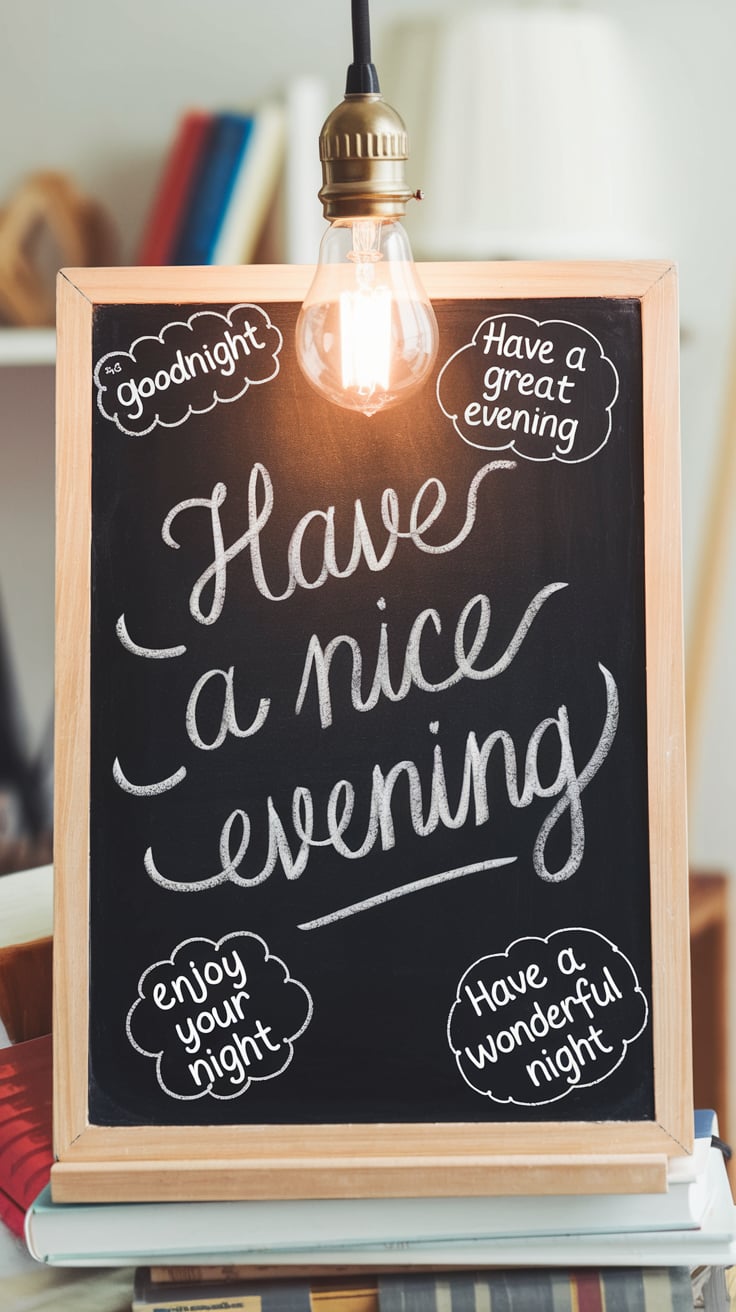 goodnight
Have a
great
evening
Have
a nice
evening
enjoy
your
night
Have a
wonderful
night